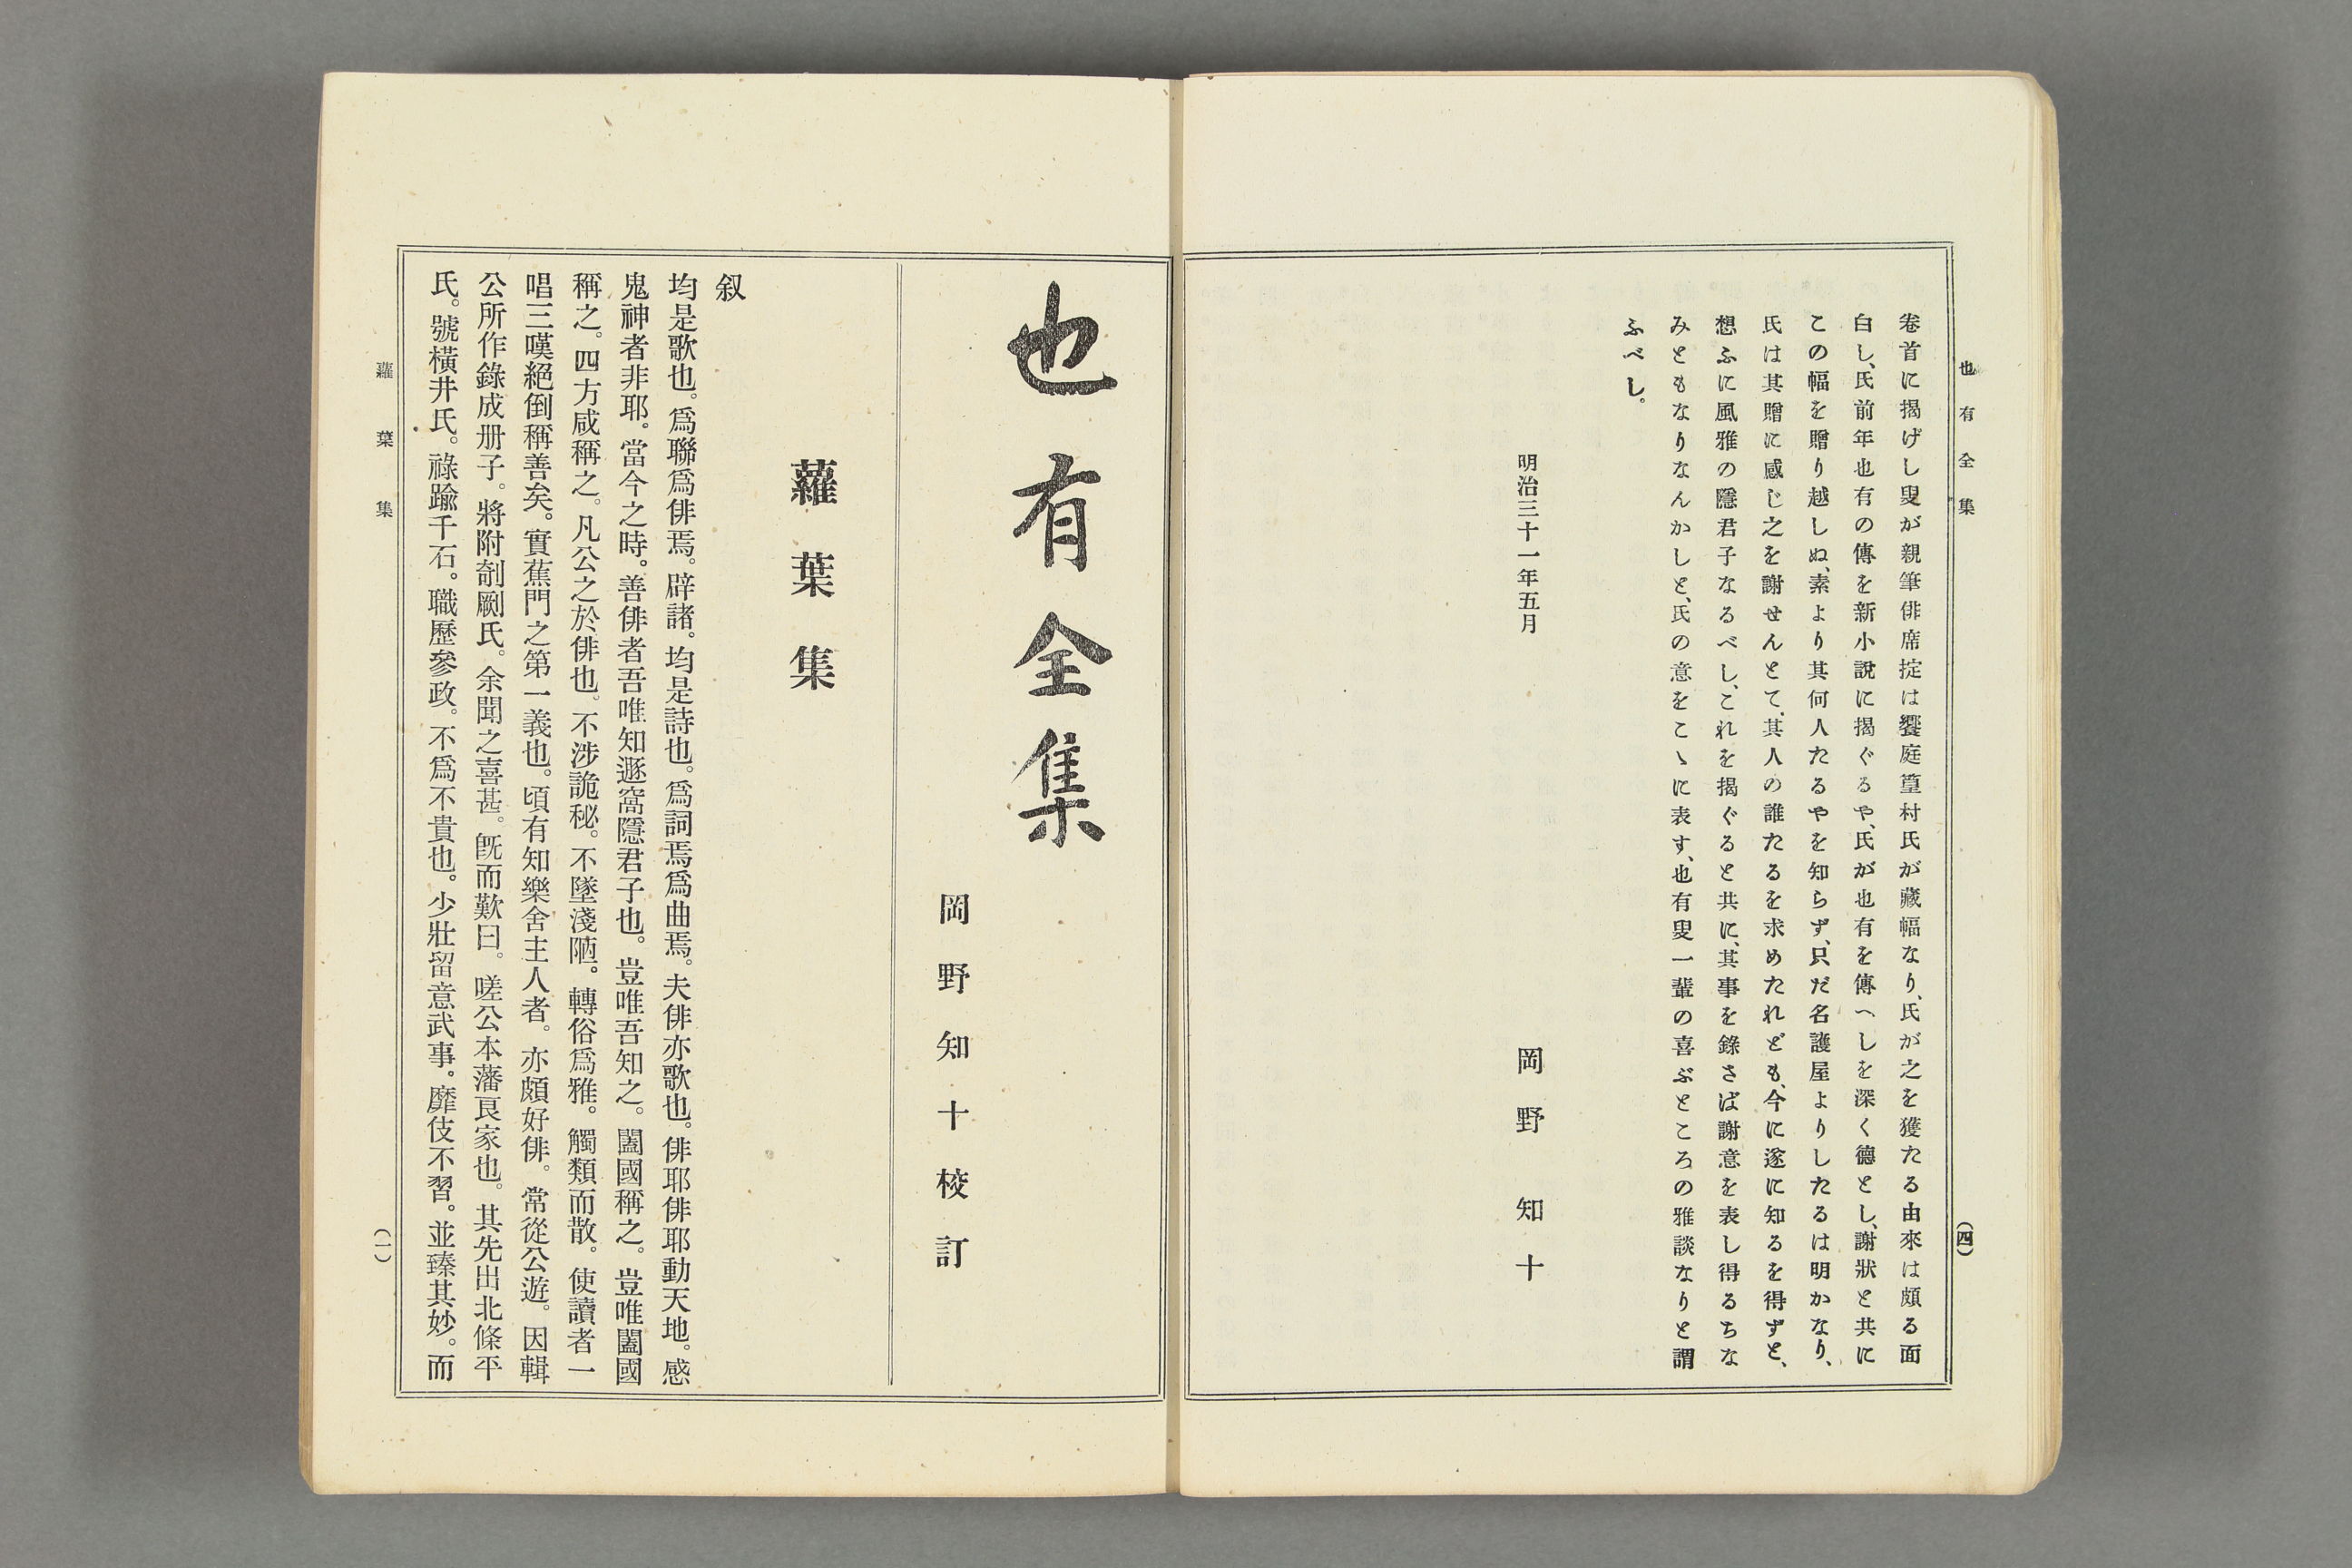 也有全集
(四)
卷首に揭げし叟が親筆俳席掟は饗庭篁村氏が藏幅なり、氏が之を獲たる由來は頗る面
白し、氏前年也有の傳を新小說に揭ぐるや、氏が也有を傳へしを深く德とし、謝狀と共に
この幅を贈り越しぬ、素より其何人たるやを知らず、只だ名護屋よりしたるは明かなり、
氏は其贈に感じ之を謝せんとて、其人の誰たるを求めたれども、今に遂に知るを得ずと、
想ふに風雅の隱君子なるべし、これを揭ぐると共に、其事を錄さば謝意を表し得るちな
みともなりなんかしと、氏の意をこゝに表す、也有叟一輩の喜ぶところの雅談なりと謂
ふべし。
明治三十一年五月
岡野知十
也有全集
岡野知十校訂
蘿葉集
叙
均是歌也。爲聯爲俳焉。辟諸。均是詩也。爲詞焉爲曲焉。夫俳亦歌也。俳耶俳耶動天地。感
鬼神者非耶。當今之時。善俳者吾唯知遯窩隱君子也。豈唯吾知之。闔國稱之。豈唯闔國
稱之。四方咸稱之。凡公之於俳也。不涉詭秘。不墜淺陋。轉俗爲雅。觸類而散。使讀者一
唱三嘆絕倒稱善矣。實蕉門之第一義也。頃有知樂舍主人者。亦頗好俳。常從公遊。因輯
公所作錄成册子。將附剞劂氏。余聞之喜甚。旣而歎曰。嗟公本藩良家也。其先出北條平
氏。號橫井氏。祿踰千石。職歷參政。不爲不貴也。少壯留意武事。靡伎不習。並臻其妙。而
蘿葉集
(一)